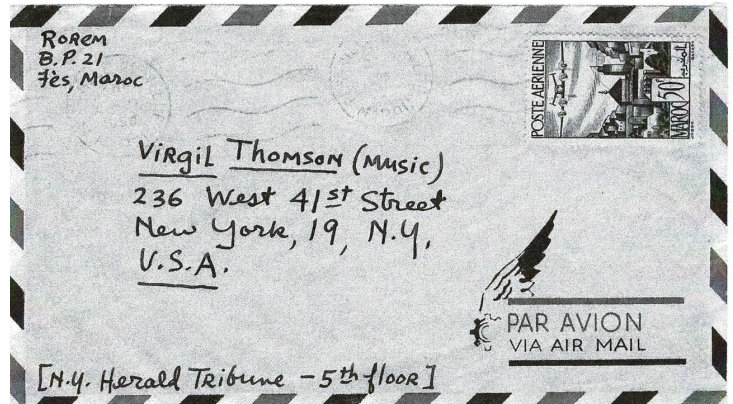 Rorem
B.P. 21
Fès, Maroc
POSTE AERIENNE
MAROC 50F
Virgil Thomson (Music)
236 West 41st Street
New York, 19, N.Y.
U.S.A.
PAR AVION
VIA AIR MAIL
[N.Y. Herald Tribune - 5th floor]